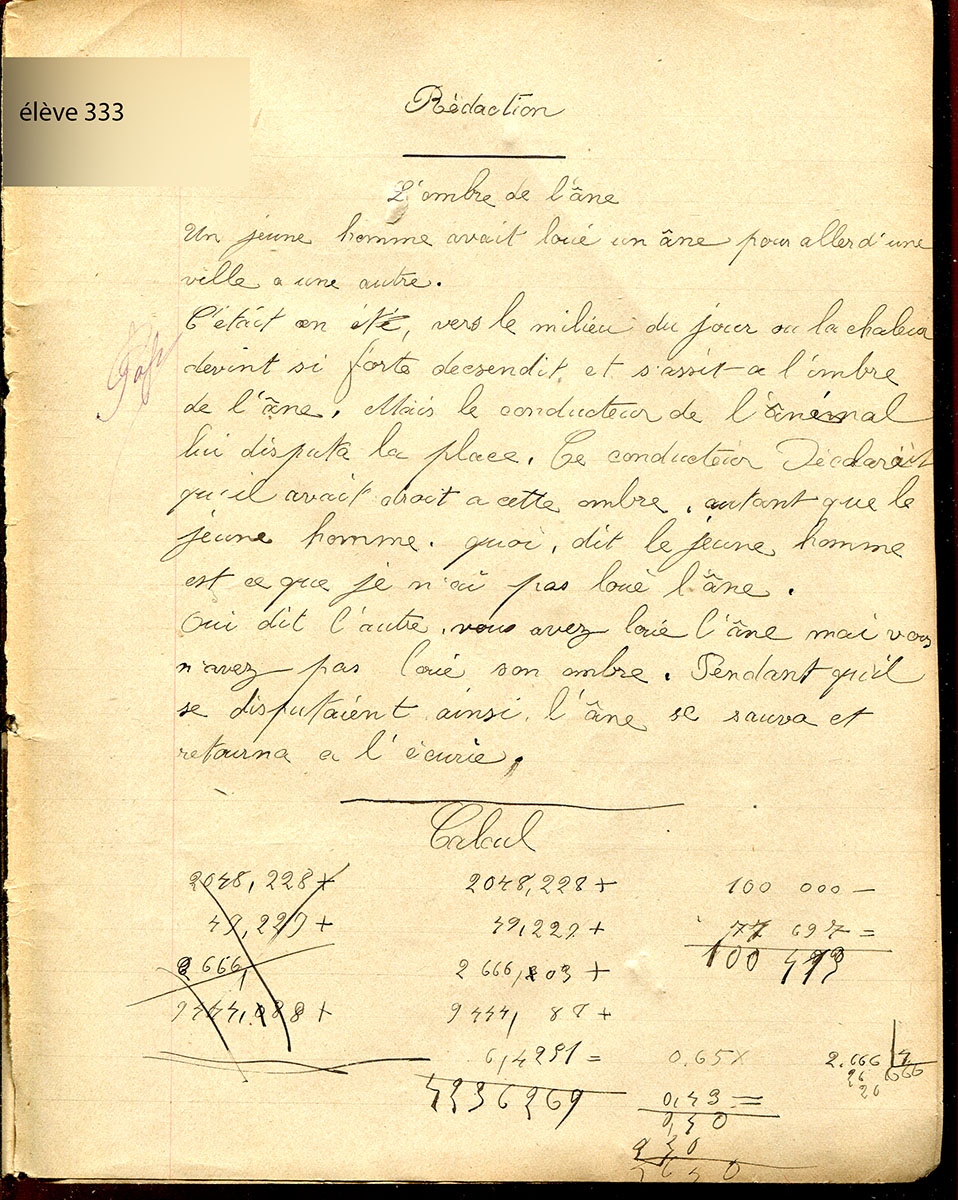 élève 333
Rédaction
L'ombre de l'âne
Un jeune homme avait loué un âne pour aller d'une
ville a une autre.
C'était en été, vers le milieu du jour ou la chaleur
devint si forte decsendit, et s'assit a l'ombre
de l'âne. Mais le conducteur de l'ânimal
lui disputa la place. Ce conducteur Déclarait
qu'il avait droit a cette ombre, autant que le
jeune homme. quoi, dit le jeune homme
est ce que je n'ai pas loué l'âne.
Oui dit l'autre, vous avez loué l'âne mai vous
n'avez pas loué son ombre. Pendant qu'il
se disputaient ainsi, l'âne se sauva et
retourna a l'écurie.
Calcul
2048,228 + 2048,228 + 100 000 -
49,229 + 49,229 + 77 697 =
2 666, 2 666,803 + 100 493
9444,088 + 9444, 88 +
6,4291 = 0.65 × 2.666 4
4236269 0,43 = 26 666
26